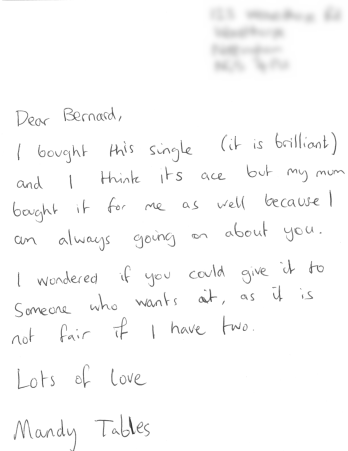 Dear Bernard,
I bought this single (it is brilliant)
and I think its ace but my mum
bought it for me as well because I
am always going on about you.
I wondered if you could give it to
Someone who wants it, as it is
not fair if I have two.
Lots of love
Mandy Tables